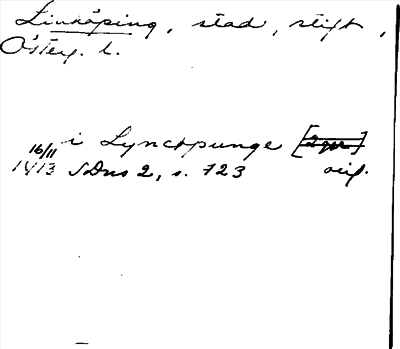 Linköping, stad, stift,
Östey. l.
i Lyncopunge
16/11
1413 SDns 2, s. 723 orig.